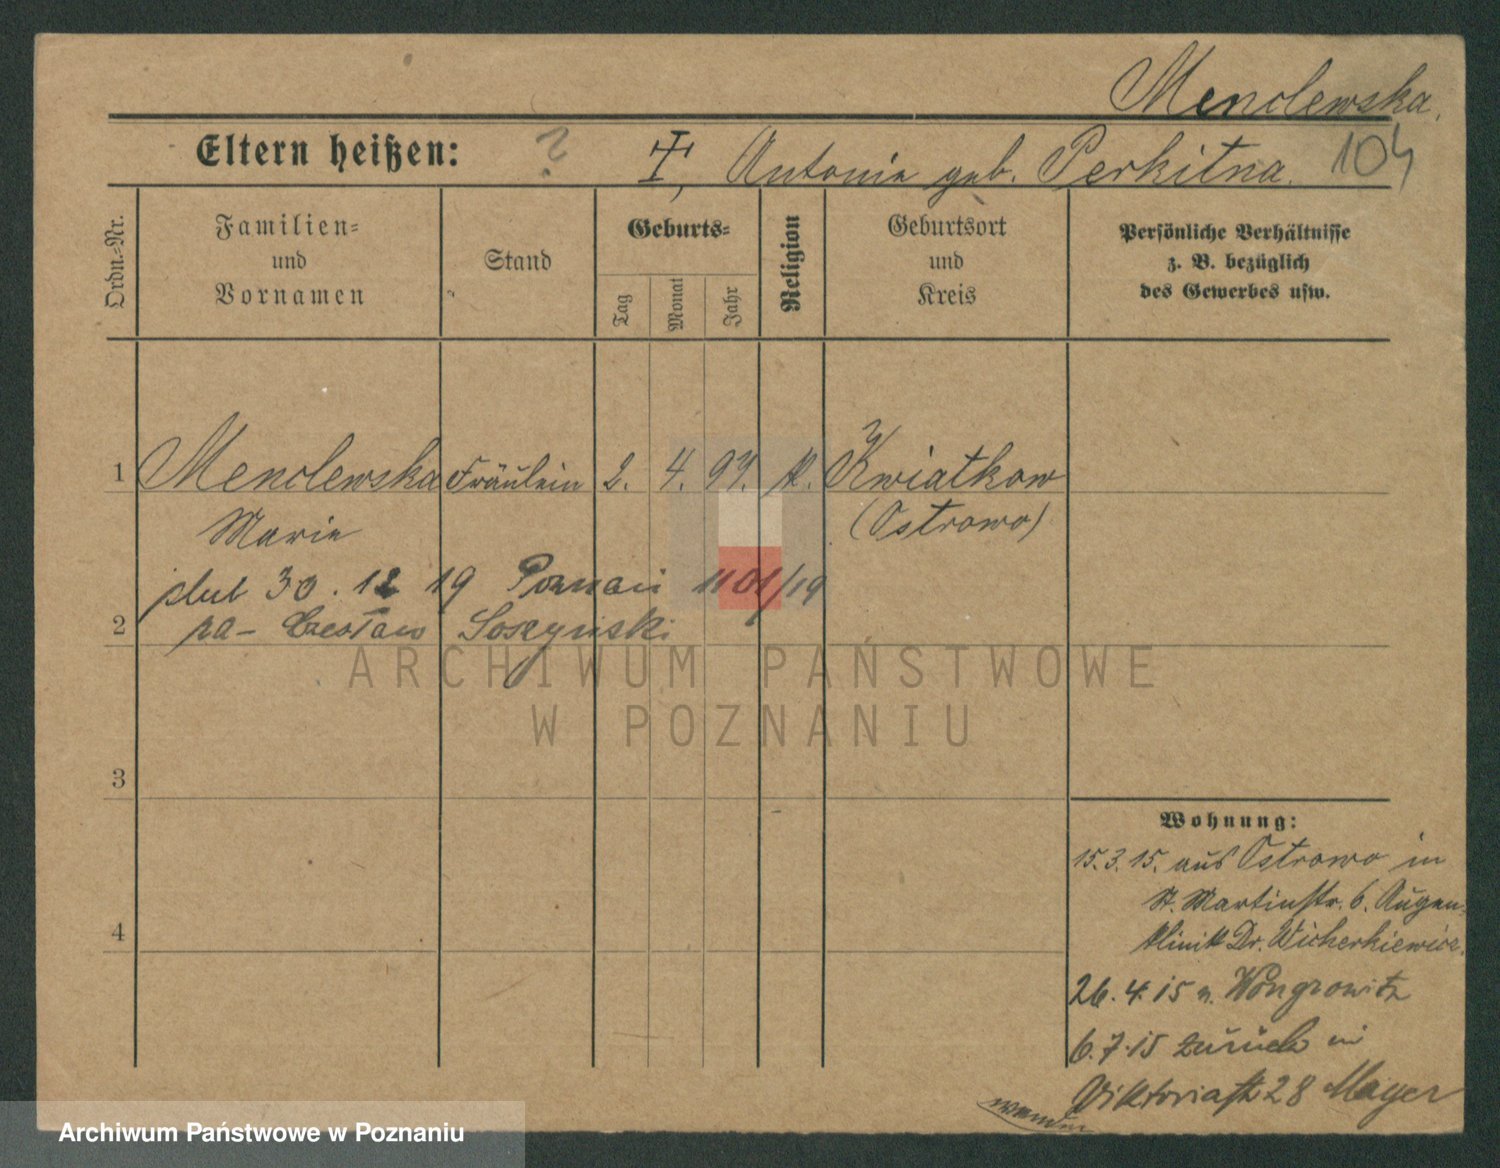 Menclewska.
Eltern heißen: ? ✝, Antonie geb. Perkitna. 104
Ordn.=Nr.
Familien=
und
Vornamen
Stand
Geburts=
Tag
Monat
Jahr
Religion
Geburtsort
und
Kreis
Persönliche Verhältnisse
z. B. bezüglich
des Gewerbes usw.
1 Menclewska Fräulein 2. 4. 97. k. Kwiatkow
Marie (Ostrowo)
ślub 30.12 19 Poznań 1101/19
2 pa- Czesław Soszyński
3
4
Wohnung:
15.3.15. aus Ostrowo in
St. Martinstr. 6. Augen-
klinik Dr. Wicherkiewicz.
26.4.15 n. Wongrowitz
6.7.15 zurück in
Viktoriastr 28 Mayer
wenden
ARCHIWUM PAŃSTWOWE
W POZNANIU
Archiwum Państwowe w Poznaniu